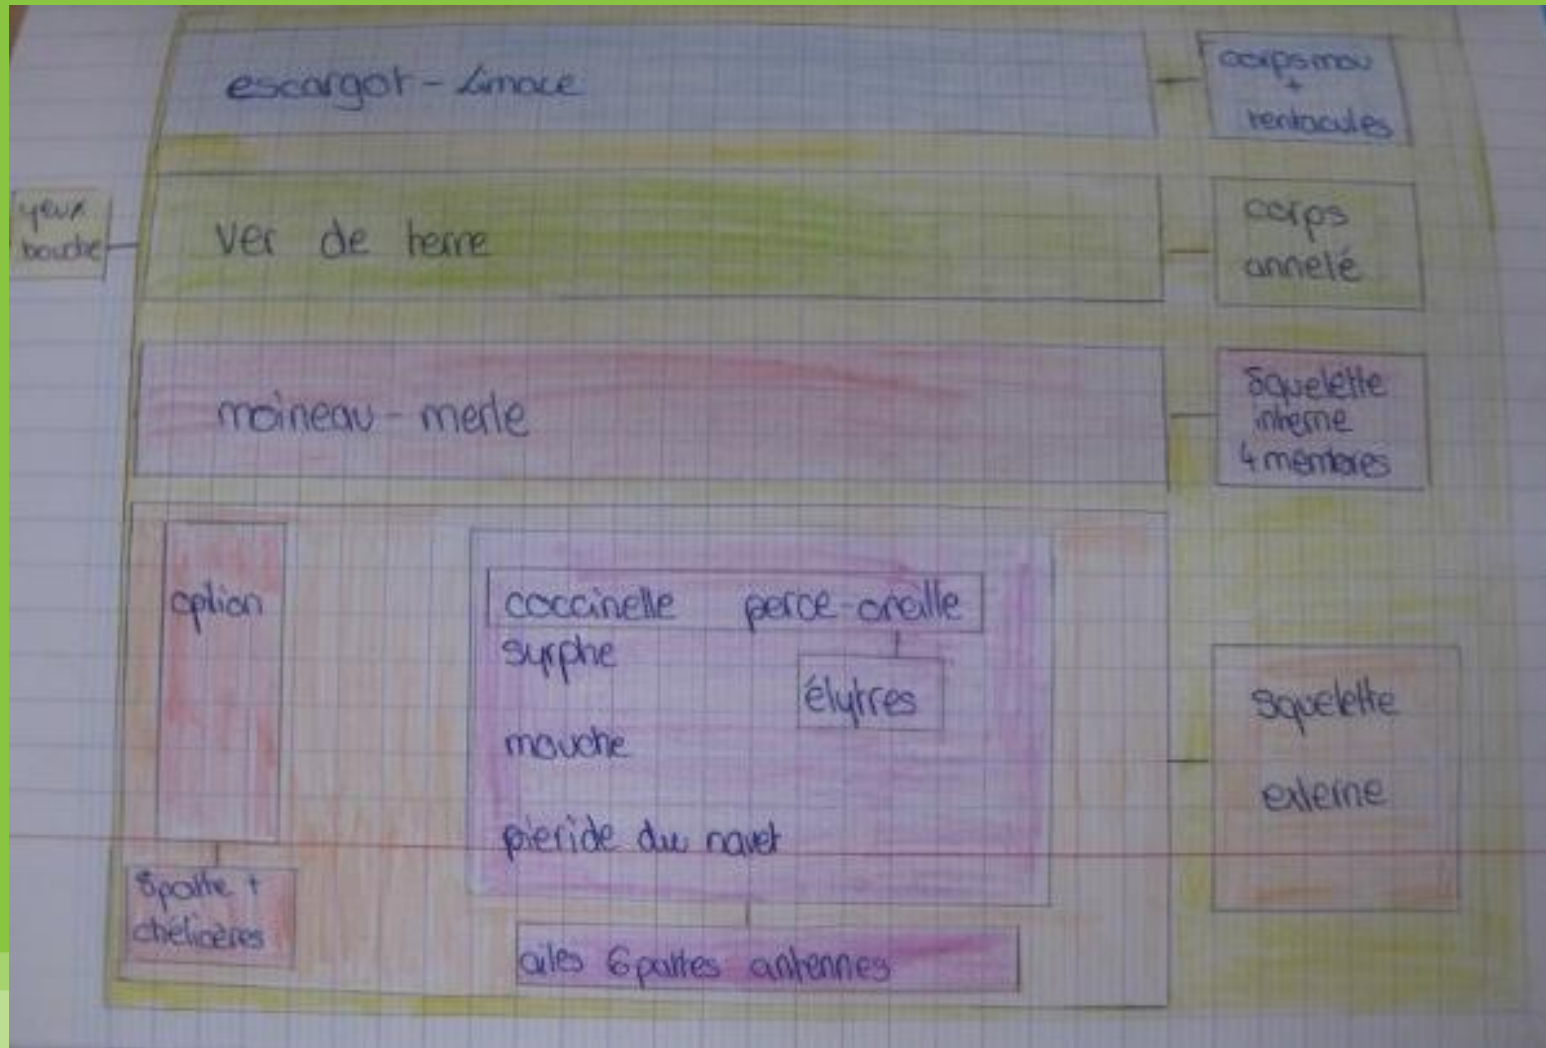 escargot - Limace
corps mou
+
tentacules
yeux
bouche
ver de terre
corps
annelé
moineau - merle
squelette
interne
4 membres
opilion
coccinelle perce-oreille
syrphe
élytres
mouche
pieride du navet
squelette
externe
8 patte +
chélicères
ailes 6 pattes antennes